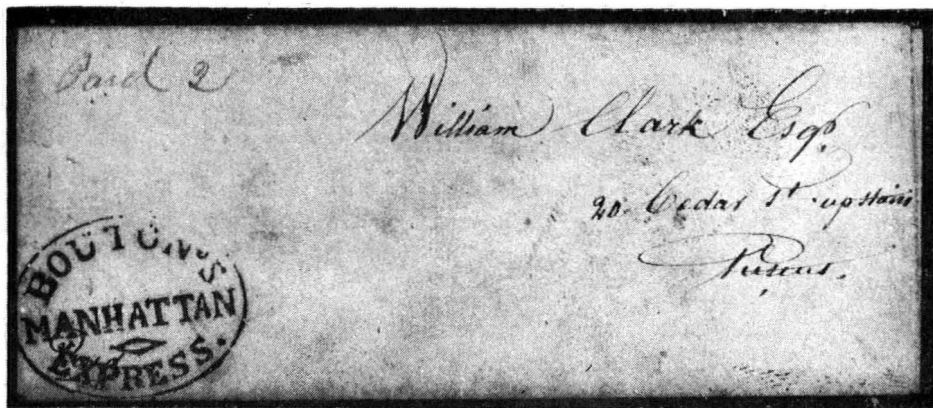 Paid 2
William Clark Esqr.
20. Cedar St. upstairs
BOUTON'S
MANHATTAN
EXPRESS.